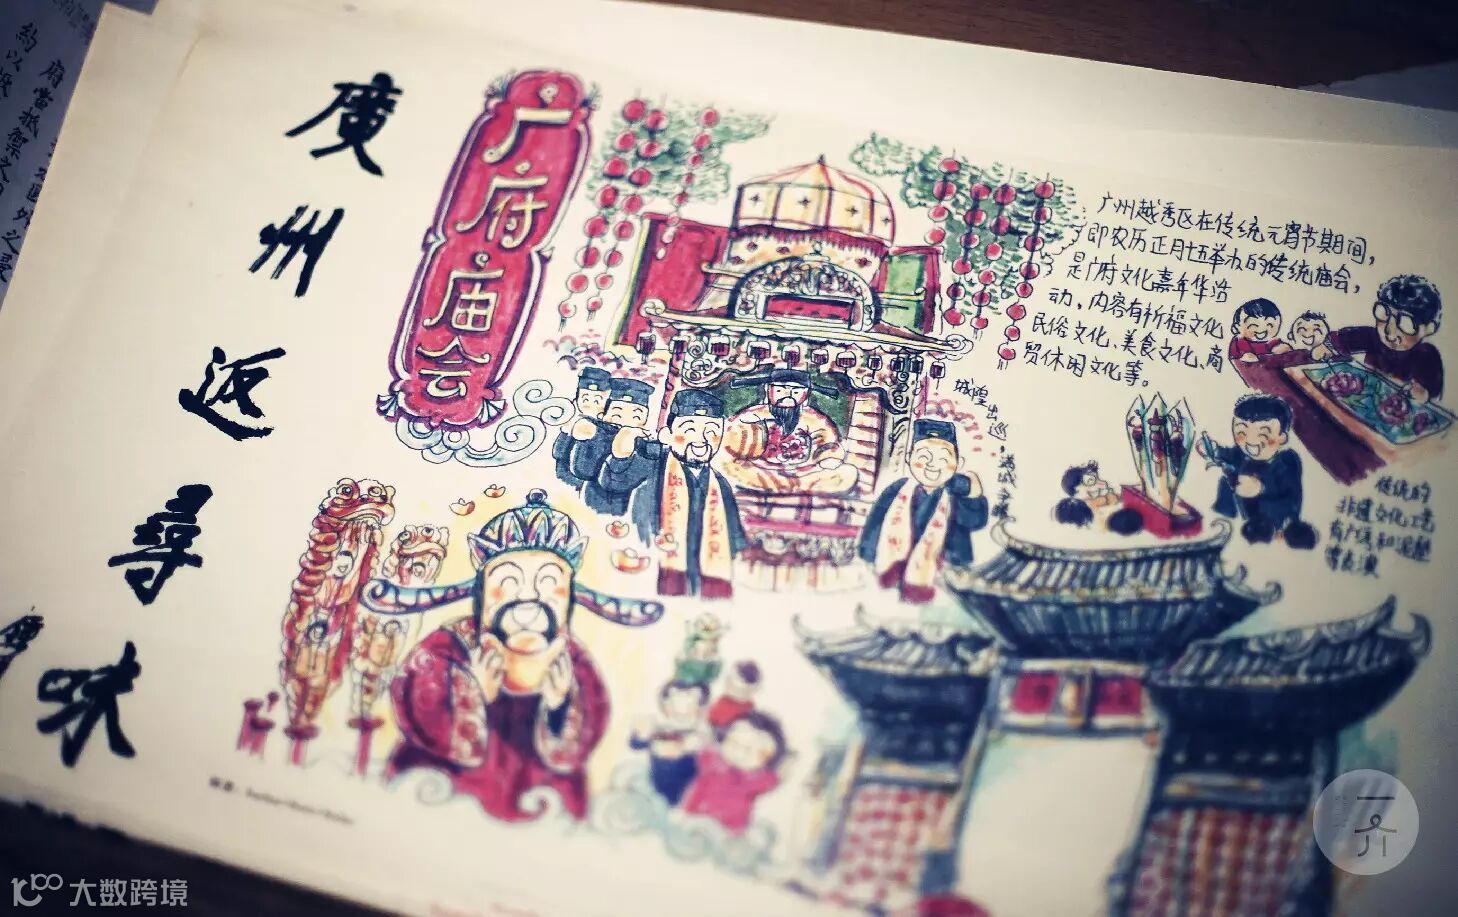 廣州返尋味
广府庙会
广州越秀区在传统元宵节期间，
即农历正月十五举办的传统庙会，
是广府文化嘉年华活
动，内容有祈福文化
民俗文化、美食文化、商
贸休闲文化等。
城隍出巡，满城
传统的
非遗文化工艺
有广绣和泥塑
等表演
大数跨境